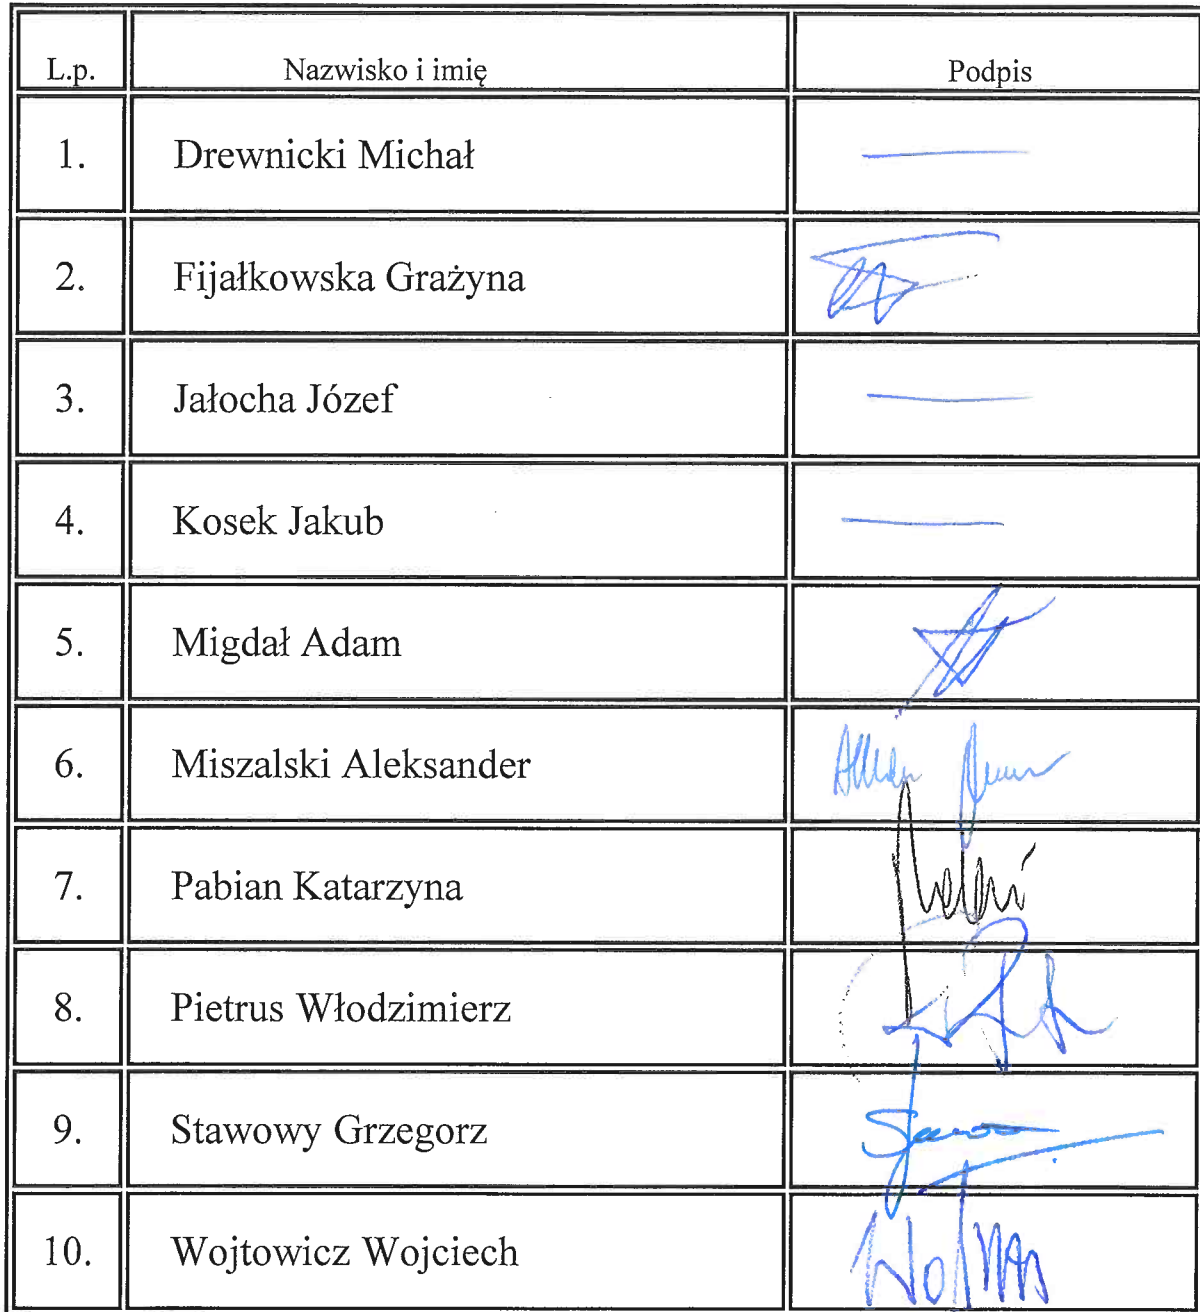 L.p. Nazwisko i imię Podpis
1. Drewnicki Michał —
2. Fijałkowska Grażyna
3. Jałocha Józef —
4. Kosek Jakub —
5. Migdał Adam
6. Miszalski Aleksander
7. Pabian Katarzyna
8. Pietrus Włodzimierz
9. Stawowy Grzegorz
10. Wojtowicz Wojciech